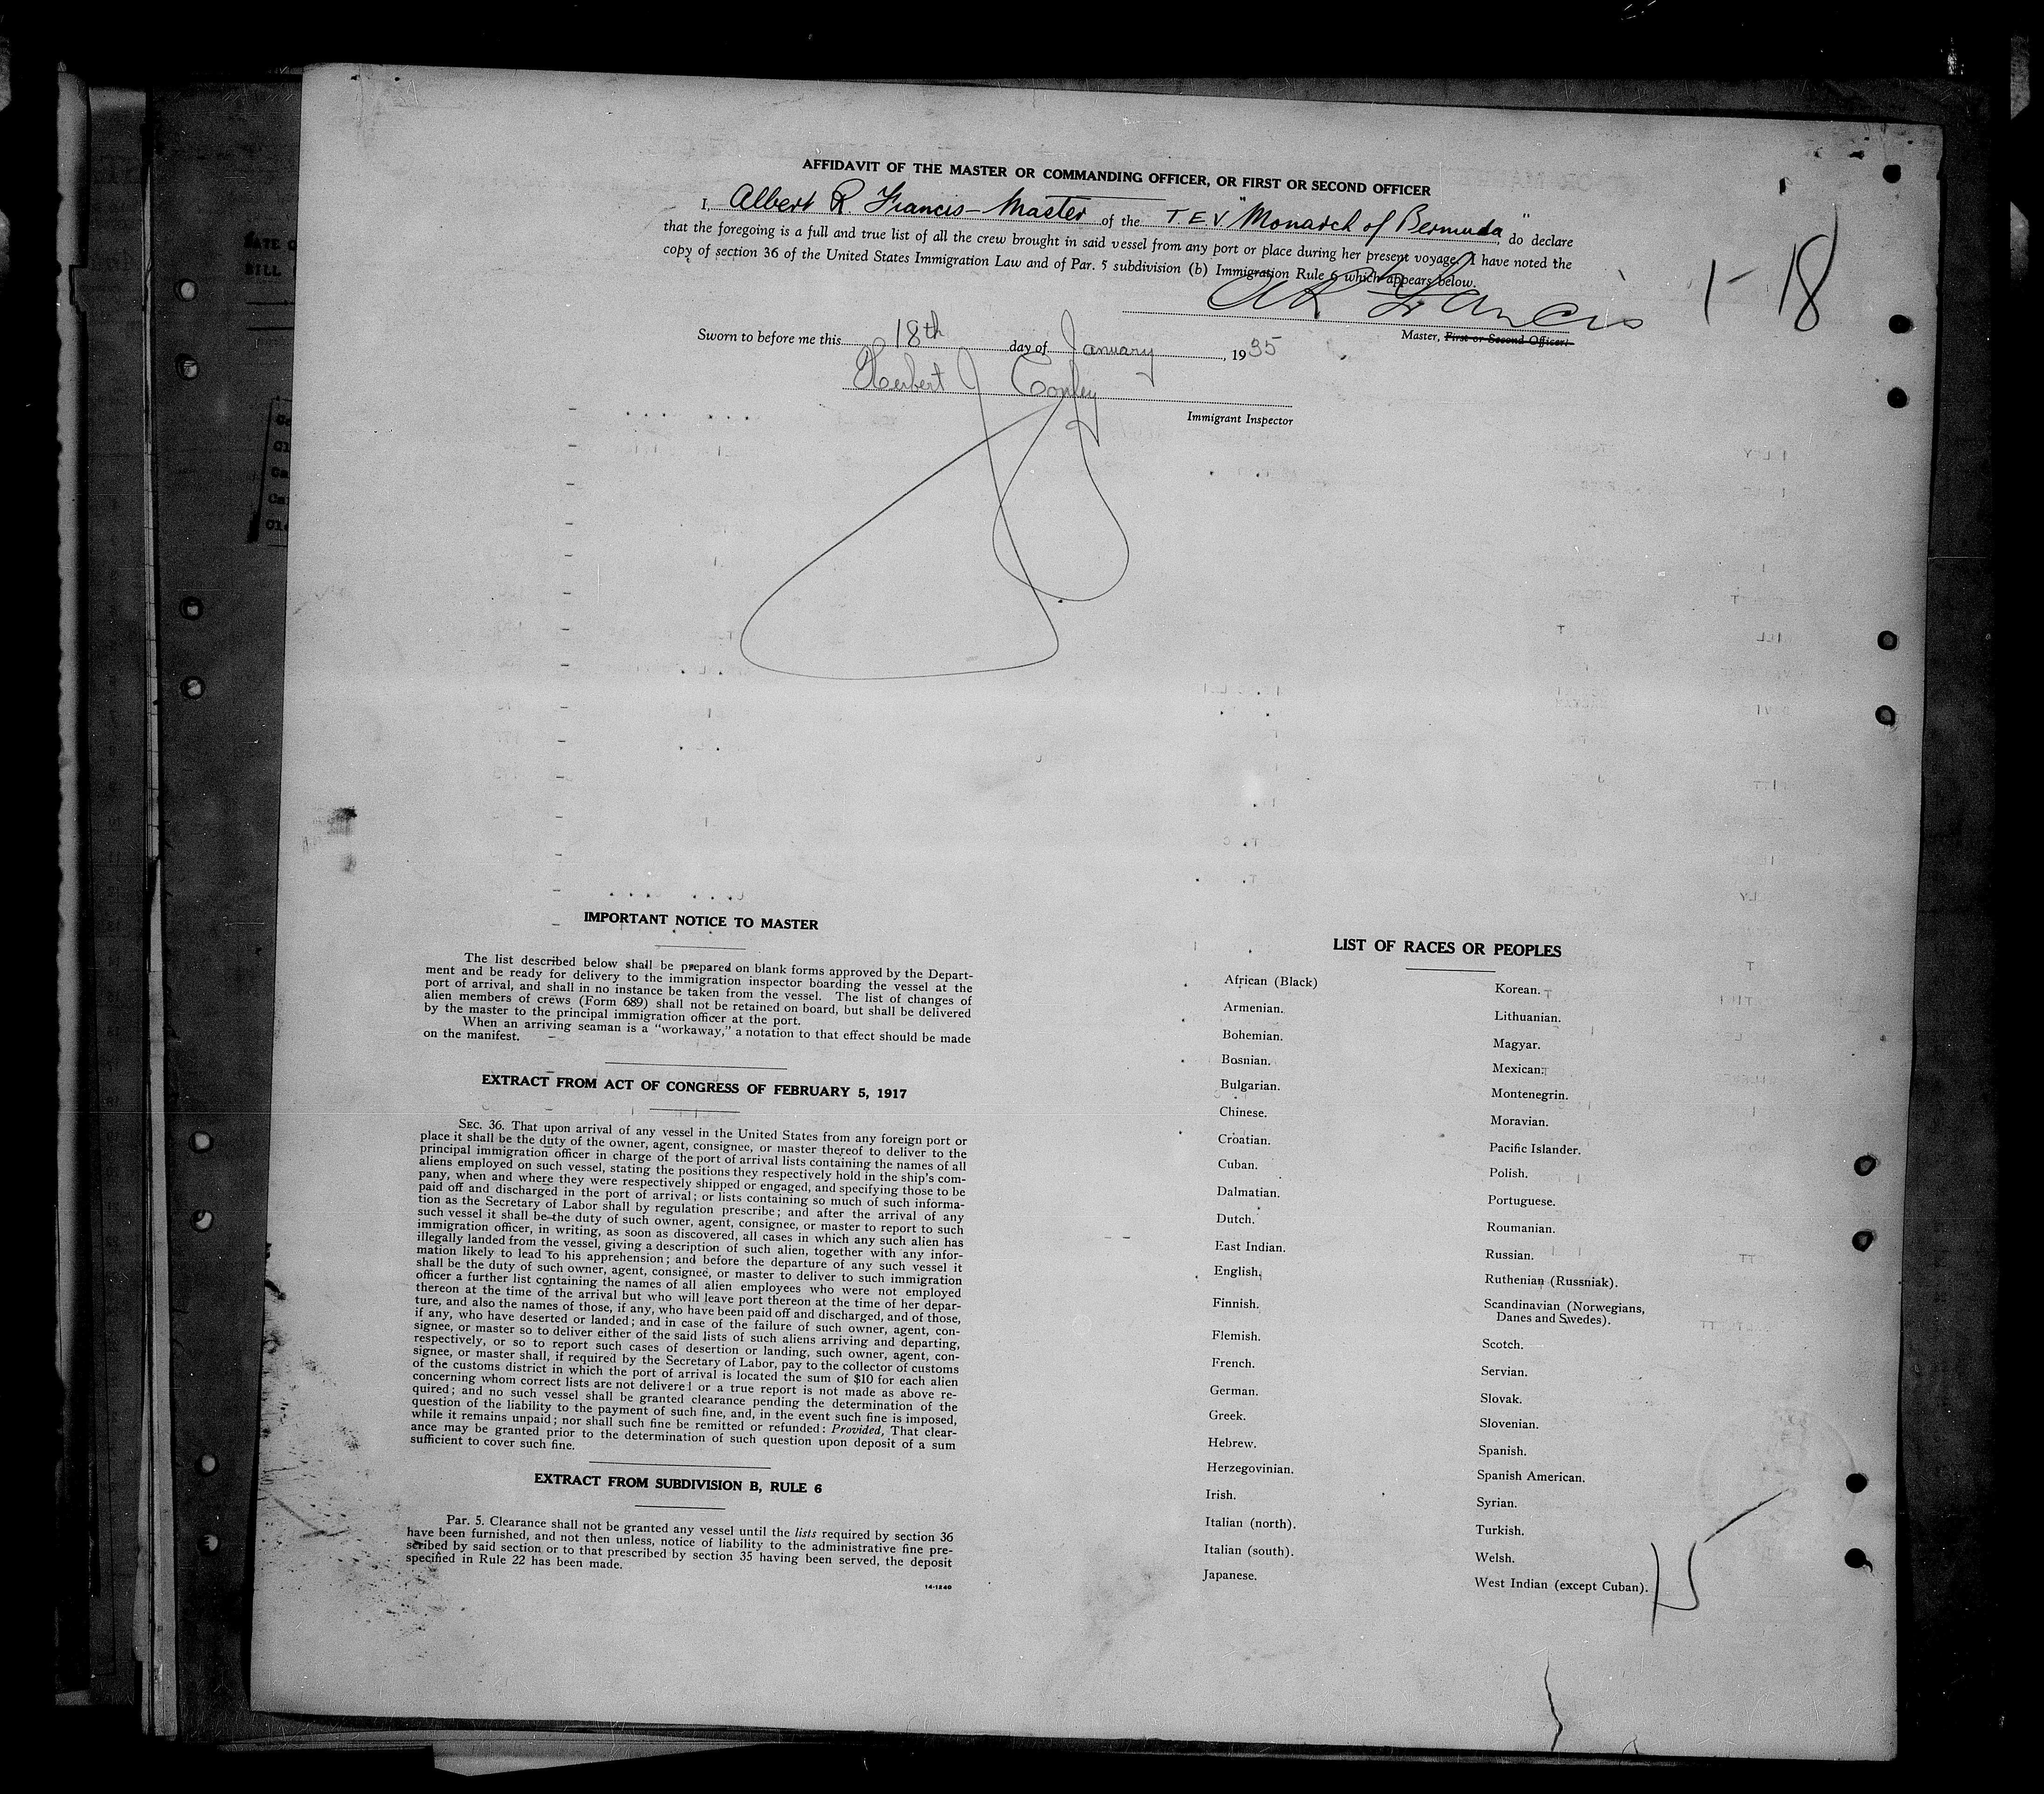 AFFIDAVIT OF THE MASTER OR COMMANDING OFFICER, OR FIRST OR SECOND OFFICER
I, Albert R. Francis - Master of the T.E.V. "Monarch of Bermuda," do declare
that the foregoing is a full and true list of all the crew brought in said vessel from any port or place during her present voyage. I have noted the
copy of section 36 of the United States Immigration Law and of Par. 5 subdivision (b) Immigration Rule 6 which appears below.
AR Francis
1-18
Master, First or Second Officer.
Sworn to before me this 18th day of January, 1935
Herbert J Conley
Immigrant Inspector
IMPORTANT NOTICE TO MASTER
The list described below shall be prepared on blank forms approved by the Depart-
ment and be ready for delivery to the immigration inspector boarding the vessel at the
port of arrival, and shall in no instance be taken from the vessel. The list of changes of
alien members of crews (Form 689) shall not be retained on board, but shall be delivered
by the master to the principal immigration officer at the port.
When an arriving seaman is a "workaway," a notation to that effect should be made
on the manifest.
EXTRACT FROM ACT OF CONGRESS OF FEBRUARY 5, 1917
SEC. 36. That upon arrival of any vessel in the United States from any foreign port or
place it shall be the duty of the owner, agent, consignee, or master thereof to deliver to the
principal immigration officer in charge of the port of arrival lists containing the names of all
aliens employed on such vessel, stating the positions they respectively hold in the ship's com-
pany, when and where they were respectively shipped or engaged, and specifying those to be
paid off and discharged in the port of arrival; or lists containing so much of such informa-
tion as the Secretary of Labor shall by regulation prescribe; and after the arrival of any
such vessel it shall be the duty of such owner, agent, consignee, or master to report to such
immigration officer, in writing, as soon as discovered, all cases in which any such alien has
illegally landed from the vessel, giving a description of such alien, together with any infor-
mation likely to lead to his apprehension; and before the departure of any such vessel it
shall be the duty of such owner, agent, consignee, or master to deliver to such immigration
officer a further list containing the names of all alien employees who were not employed
thereon at the time of the arrival but who will leave port thereon at the time of her depar-
ture, and also the names of those, if any, who have been paid off and discharged, and of those,
if any, who have deserted or landed; and in case of the failure of such owner, agent, con-
signee, or master so to deliver either of the said lists of such aliens arriving and departing,
respectively, or so to report such cases of desertion or landing, such owner, agent, con-
signee, or master shall, if required by the Secretary of Labor, pay to the collector of customs
of the customs district in which the port of arrival is located the sum of $10 for each alien
concerning whom correct lists are not delivered or a true report is not made as above re-
quired; and no such vessel shall be granted clearance pending the determination of the
question of the liability to the payment of such fine, and, in the event such fine is imposed,
while it remains unpaid; nor shall such fine be remitted or refunded: Provided, That clear-
ance may be granted prior to the determination of such question upon deposit of a sum
sufficient to cover such fine.
EXTRACT FROM SUBDIVISION B, RULE 6
Par. 5. Clearance shall not be granted any vessel until the lists required by section 36
have been furnished, and not then unless, notice of liability to the administrative fine pre-
scribed by said section or to that prescribed by section 35 having been served, the deposit
specified in Rule 22 has been made.
14-1240
LIST OF RACES OR PEOPLES
African (Black)
Armenian.
Bohemian.
Bosnian.
Bulgarian.
Chinese.
Croatian.
Cuban.
Dalmatian.
Dutch.
East Indian.
English.
Finnish.
Flemish.
French.
German.
Greek.
Hebrew.
Herzegovinian.
Irish.
Italian (north).
Italian (south).
Japanese.
Korean.
Lithuanian.
Magyar.
Mexican.
Montenegrin.
Moravian.
Pacific Islander.
Polish.
Portuguese.
Roumanian.
Russian.
Ruthenian (Russniak).
Scandinavian (Norwegians,
Danes and Swedes).
Scotch.
Servian.
Slovak.
Slovenian.
Spanish.
Spanish American.
Syrian.
Turkish.
Welsh.
West Indian (except Cuban).